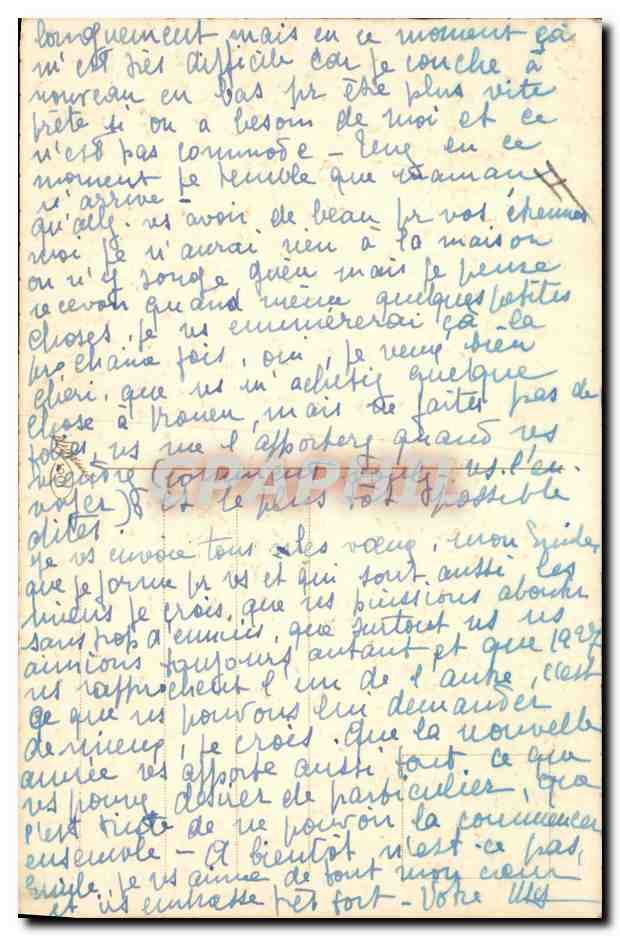 longuement mais en ce moment çà
m'est très difficile car je couche à
nouveau en bas pr être plus vite
prête si on a besoin de moi et ce
n'est pas commode - en ce
moment je tremble que maman
n'arrive -
qu'allez vs avoir de beau pr vos étrennes
moi je n'aurai rien à la maison
on n'y songe guère mais je pense
recevoir quand même quelques petites
choses, je vs énumérerai çà la
prochaine fois, oui, je veux bien
chéri, que vs m'achetiez quelque
chose à Rouen, mais ne faites pas de
folies, vs me l'apporterez quand vs
viendrez vs l'en
voyer) et le plus tôt possible
dites !
Je vs envoie tous les vœux, mon
que je forme pr vs et qui sont aussi les
miens je crois, que ns puissions aboutir
sans trop d'ennuis, que surtout ns ns
aimions toujours autant et que 1927
ns rapprochent l'un de l'autre, c'est
ce que ns pouvons lui demander
de mieux, je crois. Que la nouvelle
année vs apporte aussi tout ce que
vs pouvez désirer de particulier, que
c'est triste de ne pouvoir la commencer
ensemble - A bientôt n'est-ce pas,
je vs aime de tout mon cœur
et vs embrasse très fort - Votre
CPAPHIL